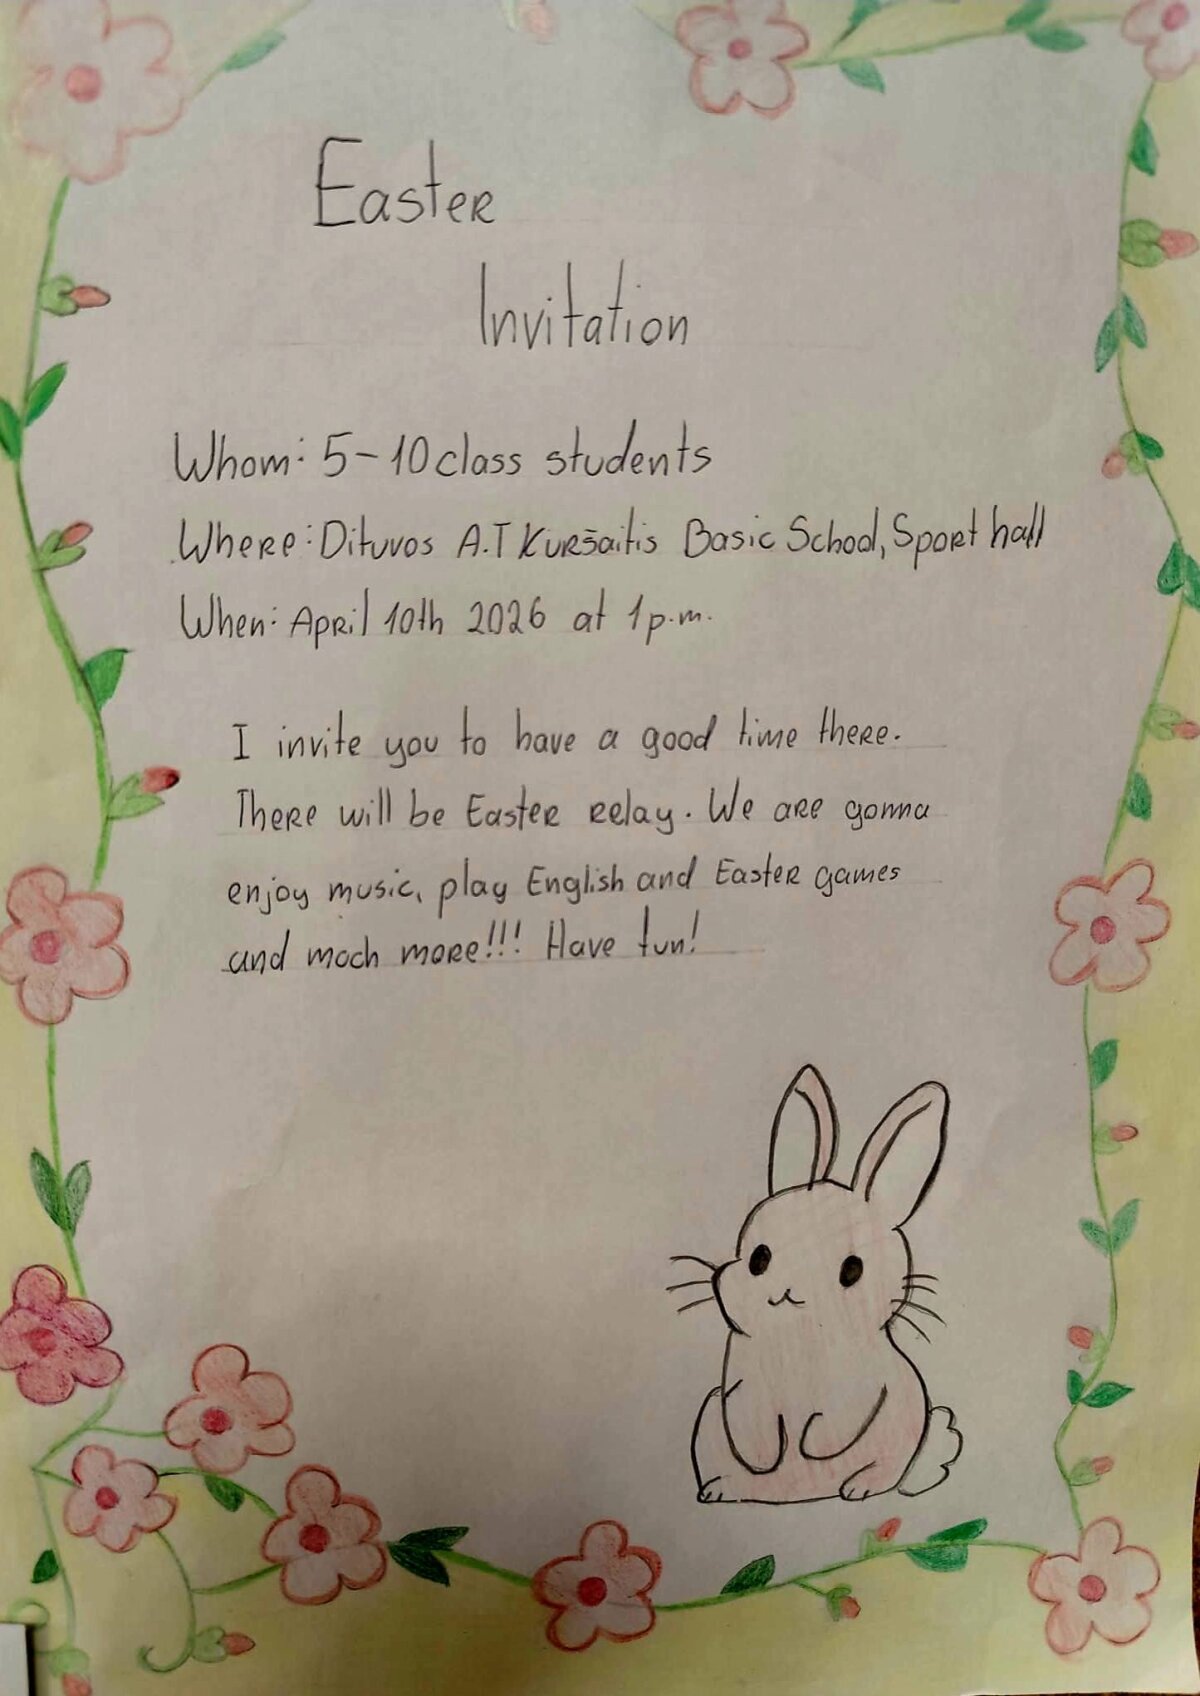 Easter
Invitation
Whom: 5-10 class students
Where: Dituvos A.T Kuršaitis Basic School, Sport hall
When: April 10th 2026 at 1 p.m.
I invite you to have a good time there.
There will be Easter relay. We are gonna
enjoy music, play English and Easter games
and moch more!!! Have fun!